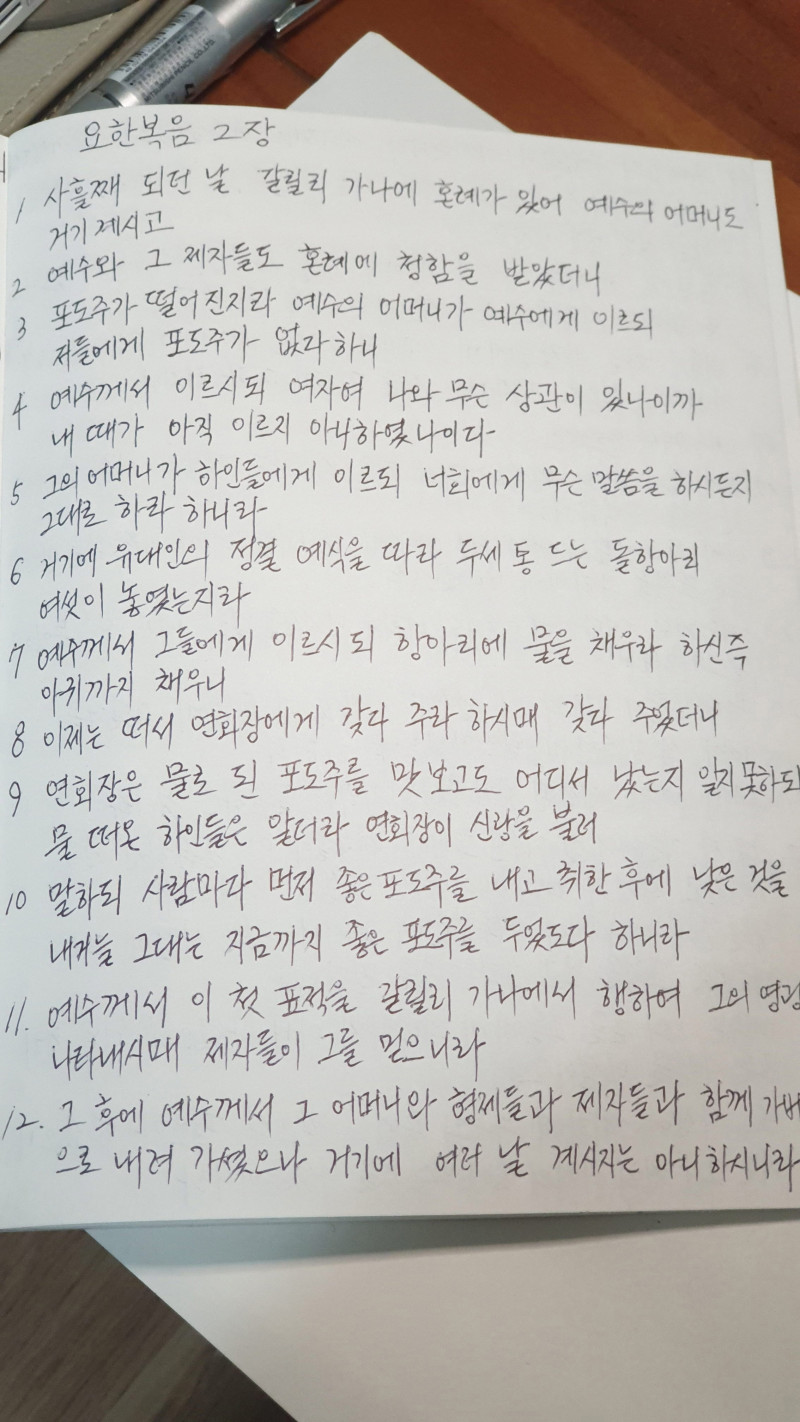 요한복음 2장
1 사흘째 되던 날 갈릴리 가나에 혼례가 있어 예수의 어머니도
거기 계시고
2 예수와 그 제자들도 혼례에 청함을 받았더니
3 포도주가 떨어진지라 예수의 어머니가 예수에게 이르되
저들에게 포도주가 없다하니
4 예수께서 이르시되 여자여 나와 무슨 상관이 있나이까
내 때가 아직 이르지 아니하였나이다
5 그의 어머니가 하인들에게 이르되 너희에게 무슨 말씀을 하시든지
그대로 하라 하니라
6 거기에 유대인의 정결 예식을 따라 두세 통 드는 돌항아리
여섯이 놓였는지라
7 예수께서 그들에게 이르시되 항아리에 물을 채우라 하신즉
아귀까지 채우니
8 이제는 떠서 연회장에게 갖다 주라 하시매 갖다 주었더니
9 연회장은 물로 된 포도주를 맛보고도 어디서 났는지 알지못하되
물 떠온 하인들은 알더라 연회장이 신랑을 불러
10 말하되 사람마다 먼저 좋은 포도주를 내고 취한 후에 낮은 것을
내거늘 그대는 지금까지 좋은 포도주를 두었도다 하니라
11. 예수께서 이 첫 표적을 갈릴리 가나에서 행하여 그의 영광
나타내시매 제자들이 그를 믿으니라
12. 그 후에 예수께서 그 어머니와 형제들과 제자들과 함께 가버
으로 내려 가셨으나 거기에 여러 날 계시지는 아니하시니라